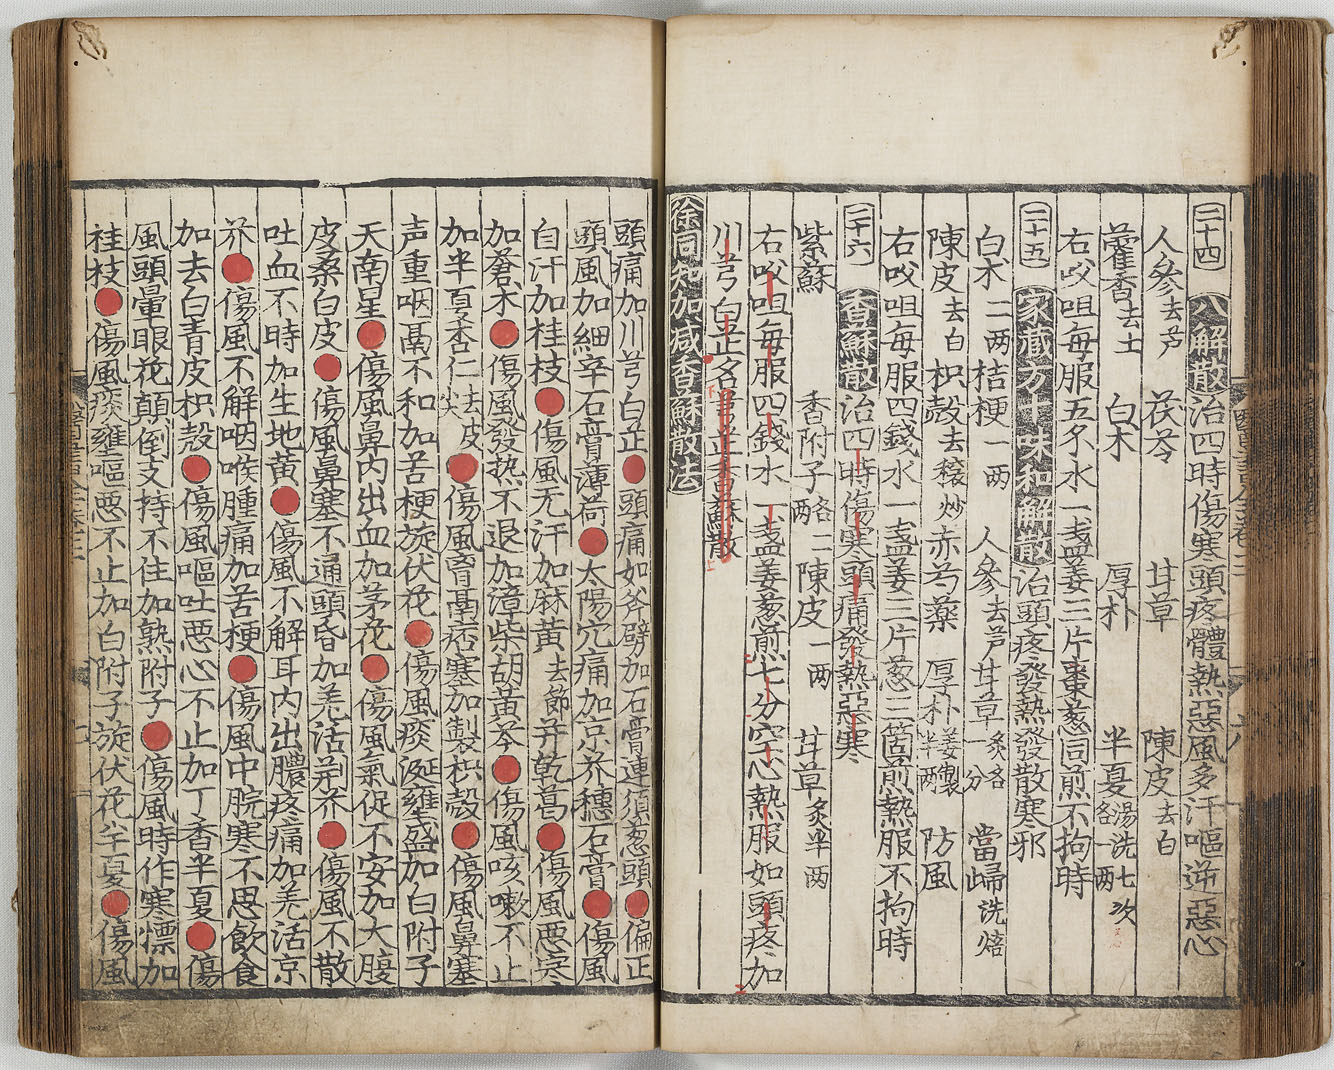 二十四 八解散 治四時傷寒頭疼體熱惡風多汗嘔逆惡心
人參去芦 茯苓 甘草 陳皮去白
藿香去土 白朮 厚朴 半夏湯洗七次各一两
右㕮咀每服五夕水一盞姜三片棗葱同煎不拘時
二十五 家藏方十味和解散 治頭疼發熱發散寒邪
白朮二两 桔梗一两 人參去芦 甘草炙各一分 當歸洗焙
陳皮去白 枳殻去穣炒 赤芍藥 厚朴姜製半两 防風
右㕮咀每服四錢水一盞姜三片葱三箇煎熱服不拘時
二十六 香蘇散 治四時傷寒頭痛發熱惡寒
紫蘇 香附子各二两 陳皮一两 甘草炙半两
右㕮咀每服四錢水一盞姜葱煎七分空心熱服如頭疼加
川芎白芷名芎芷香蘇散
徐同知加减香蘇散法
頭痛加川芎白芷●頭痛如斧劈加石膏連須葱頭●偏正
頭風加細辛石膏薄荷●太陽穴痛加京芥穗石膏●傷風
自汗加桂枝●傷風无汗加麻黄去節并乾葛●傷風惡寒
加蒼朮●傷風發热不退加漄柴胡黃芩●傷風咳嗽不止
加半夏杏仁去皮尖●傷風胷鬲痞塞加製枳殻●傷風鼻塞
声重咽鬲不和加苦梗旋伏花●傷風痰涎壅盛加白附子
天南星●傷風鼻内出血加茅花●傷風氣促不安加大腹
皮桑白皮●傷風鼻塞不通頭昏加羌活荆芥●傷風不散
吐血不時加生地黄●傷風不解耳内出膿疼痛加羌活京
芥●傷風不解咽喉腫痛加苦梗●傷風中脘寒不思飲食
加去白青皮枳殻●傷風嘔吐惡心不止加丁香半夏●傷
風頭暈眼花顛倒支持不住加熟附子●傷風時作寒慓加
桂枝●傷風痰壅嘔惡不止加白附子旋伏花半夏●傷風